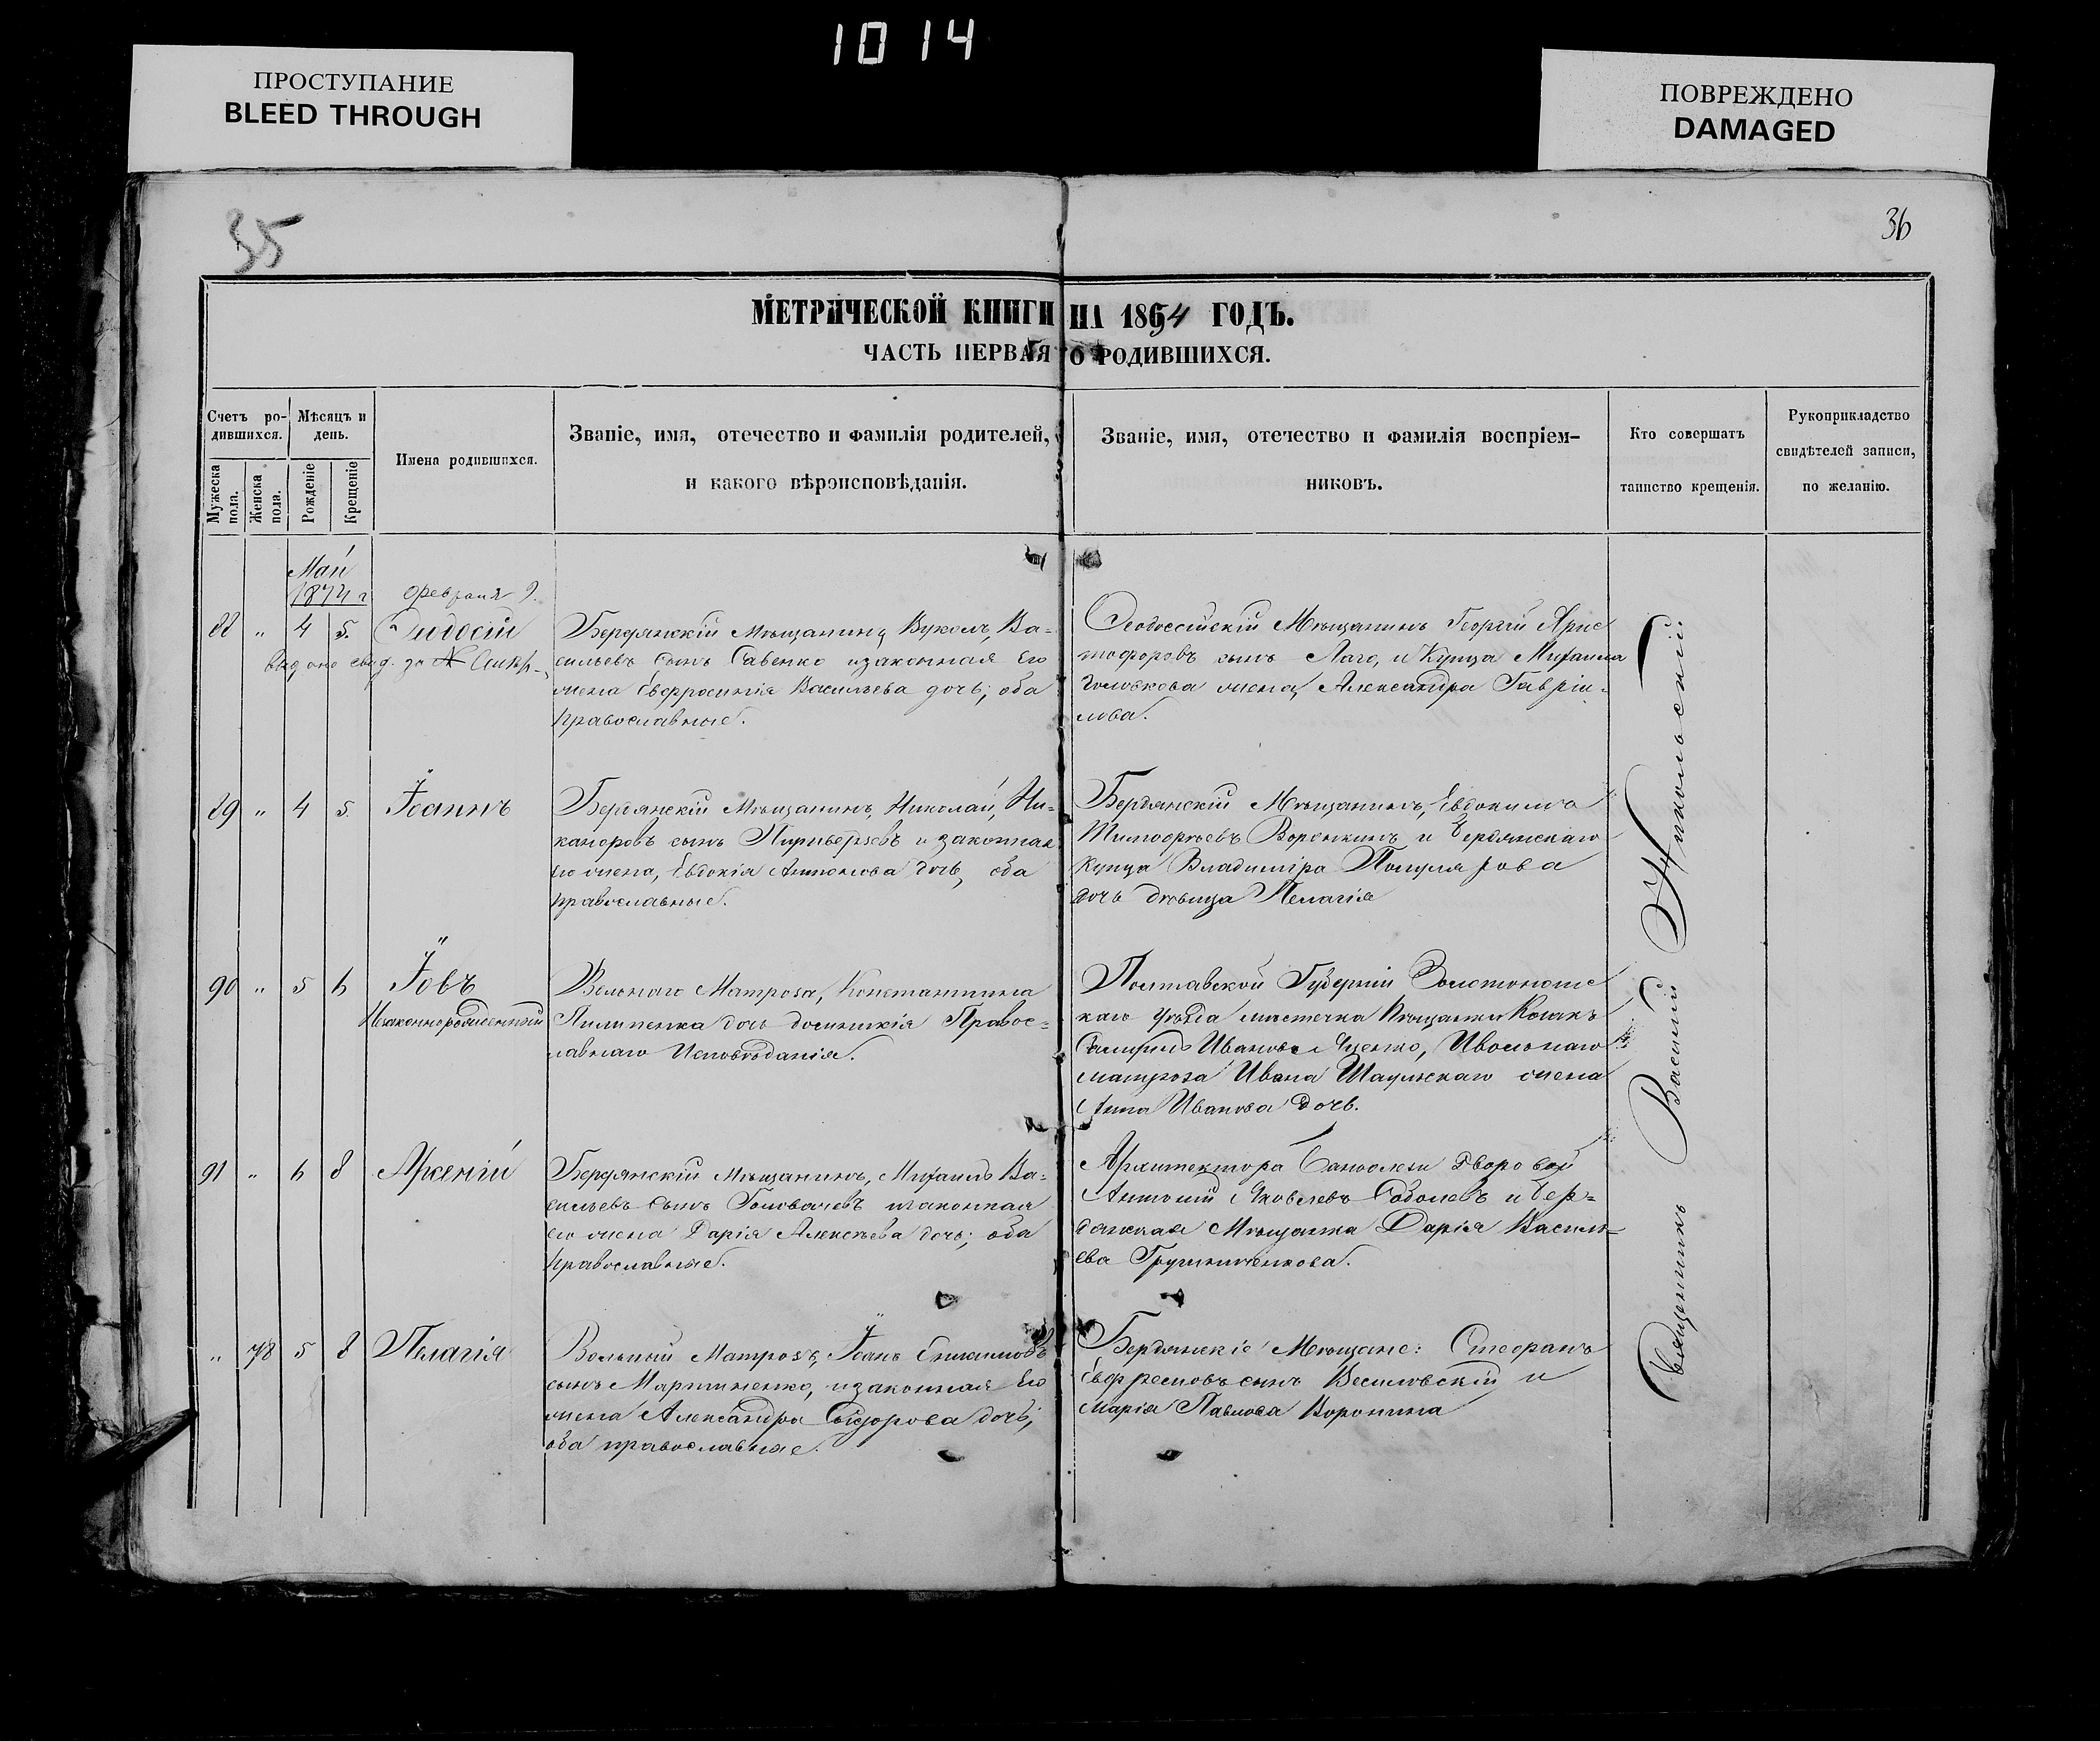 1014
ПРОСТУПАНИЕ
BLEED THROUGH
ПОВРЕЖДЕНО
DAMAGED
35
36
МЕТРИЧЕСКОЙ КНИГИ НА 1854 ГОДЪ.
ЧАСТЬ ПЕРВАЯ О РОДИВШИХСЯ.
Счетъ ро-
дившихся.
Мѣсяцъ и
день.
Мужеска
пола.
Женска
пола.
Рожденіе
Крещеніе
Имена родившихся.
Званіе, имя, отечество и фамилія родителей,
и какого вѣроисповѣданія.
Званіе, имя, отечество и фамилія воспріем-
никовъ.
Кто совершатъ
таинство крещенія.
Рукоприкладство
свидѣтелей записи,
по желанію.
Май
1874 г Февраля 9.
88 " 4 5.
выдано свид. за №
Бердянскій Мѣщанинъ Вуколъ, Ва=
сильевъ сынъ Савенко изаконная Его
жена Евфросинія Васильева дочь; оба
Православные.
Феодосійскій Мѣщанинъ Георгій Хрис
тофоровъ сынъ Лаго, и Купца Михаила
Головкова жена, Александра Гавріи-
лова.
89 " 4 5. Іоаннъ
Бердянскій Мѣщанинъ, Николай, Ни=
каноровъ сынъ и законная
его жена, Евдокія Антонова дочь, оба
православные.
Бердянскій Мѣщанинъ, Евдокимъ
Тимофѣевъ Воронкинъ и Бердянскаго
Купца Владиміра
дочь дѣвица Пелагія
90 " 5 6 Іовъ
Незаконнорожденный
Вольнаго Матроса, Константина
Пилипенка дочь Домникія Правос=
лавнаго Исповѣданія.
Полтавской Губерніи Золотонош
каго уѣзда мѣстечка Козакъ
Иванова Яценко, Ивольнаго
матроза Ивана жена
Анна Иванова дочь.
91 " 6 8 Арсеній
Бердянскій Мѣщанинъ, Михаилъ Ва=
сильевъ сынъ Головачевъ изаконная
его жена Дарія Алексѣева дочь; оба
православные.
Архитектора Дворовой
Антоній Яковлевъ Соболевъ и Бер=
дянская Мѣщанка Дарія Василь=
ева
" 78 5 8 Пелагія
Вольный Матрозъ, Іоанъ
сынъ Мартиненко, изаконная Его
жена Александра Сидорова дочь;
оба православные.
Бердянскіе Мѣщане: Стефанъ
сынъ Веселовскій и
Марія Павлова Воронина
Священникъ Василій Никольскій